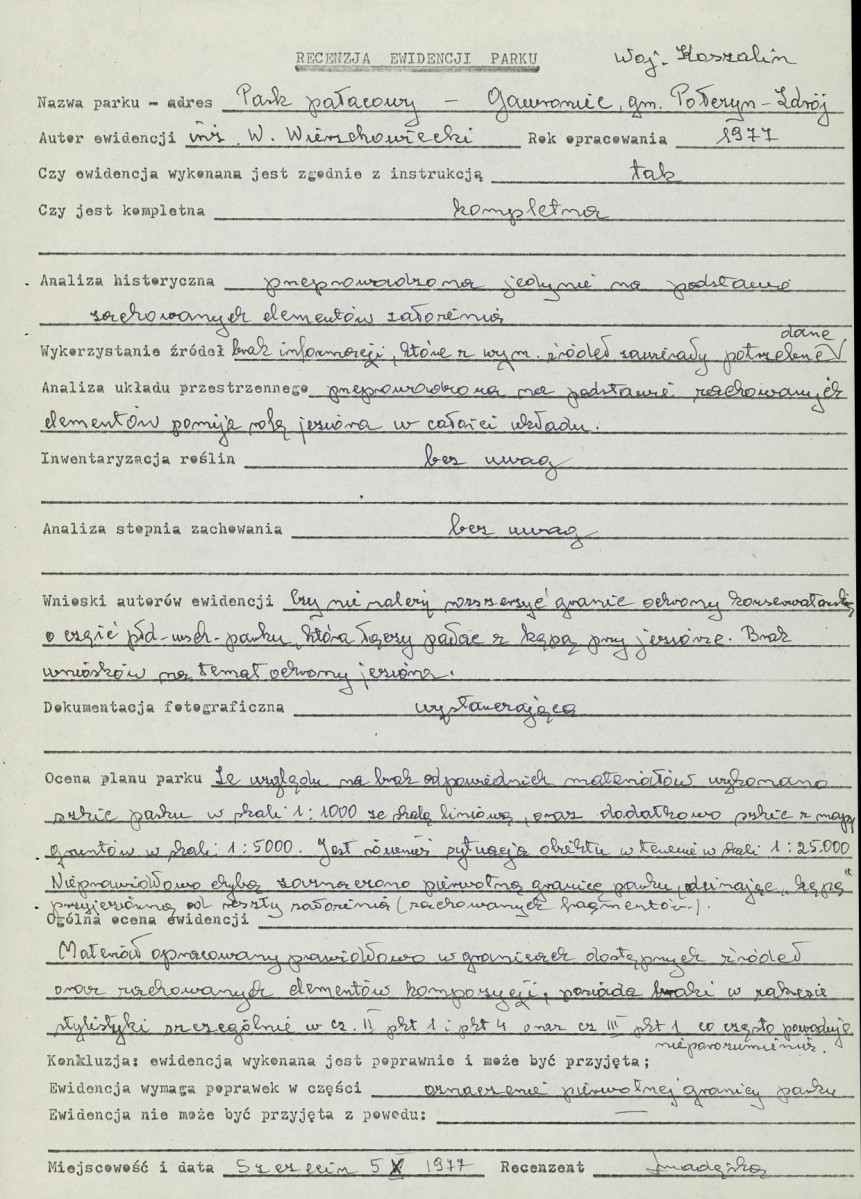 RECENZJA EWIDENCJI PARKU woj. Koszalin
Nazwa parku - adres Park pałacowy - Gawroniec, gm. Połczyn-Zdrój
Autor ewidencji inż. W. Wierzchowiecki Rok opracowania 1977
Czy ewidencja wykonana jest zgodnie z instrukcją tak
Czy jest kompletna kompletna
Analiza historyczna przeprowadzona jedynie na podstawie
zachowanych elementów założenia
dane
Wykorzystanie źródeł brak informacji, które z wym. źródeł zawierały potrzebne V
Analiza układu przestrzennego przeprowadzona na podstawie zachowanych
elementów pomija rolę jeziora w całości układu.
Inwentaryzacja reślin bez uwag
Analiza stopnia zachowania bez uwag
Wnioski autorów ewidencji Czy nie należy rozszerzyć granic ochrony konserwatorskiej
o część płd-wsch. parku, która łączy pałac z kępą przy jeziorze. Brak
wniosków na temat ochrony jeziora.
Dokumentacja fotograficzna wystarczająca
Ocena planu parku Ze względu na brak odpowiednich materiałów wykonano
szkic parku w skali 1:1000 ze skalą liniową, oraz dodatkowo szkic z mapy
gruntów w skali 1:5000. Jest również sytuacja obiektu w terenie w skali 1:25.000
Nieprawidłowo chyba zaznaczono pierwotną granicę parku, odcinając "kępę"
przyjeziorną od reszty założenia (zachowanych fragmentów).
Ogólna ocena ewidencji
Materiał opracowany prawidłowo w granicach dostępnych źródeł
oraz zachowanych elementów kompozycji, posiada braki w zakresie
stylistyki szczególnie w cz. II pkt 1 i pkt 4 oraz cz III pkt 1 co często powoduje
nieporozumienia.
Konkluzja: ewidencja wykonana jest poprawnie i może być przyjęta;
Ewidencja wymaga poprawek w części oznaczenie pierwotnej granicy parku
Ewidencja nie może być przyjęta z powodu: —
Miejscowość i data Szczecin 5 X 1977 Recenzent